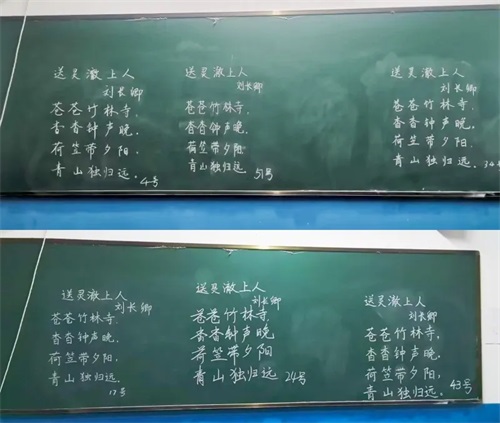 送灵澈上人
刘长卿
苍苍竹林寺,
杳杳钟声晚,
荷笠带夕阳,
青山独归远。
4号
送灵澈上人
刘长卿
苍苍竹林寺,
杳杳钟声晚,
荷笠带夕阳,
青山独归远。
51号
送灵澈上人
刘长卿
苍苍竹林寺,
杳杳钟声晚,
荷笠带夕阳,
青山独归远,
送灵澈上人
刘长卿
苍苍竹林寺,
杳杳钟声晚,
荷笠带夕阳,
青山独归远.
17号
送灵澈上人
刘长卿
苍苍竹林寺,
杳杳钟声晚
荷笠带夕阳
青山独归远
24号
送灵澈上人
刘长卿
苍苍竹林寺,
杳杳钟声晚,
荷笠带夕阳,
青山独归远.
43号